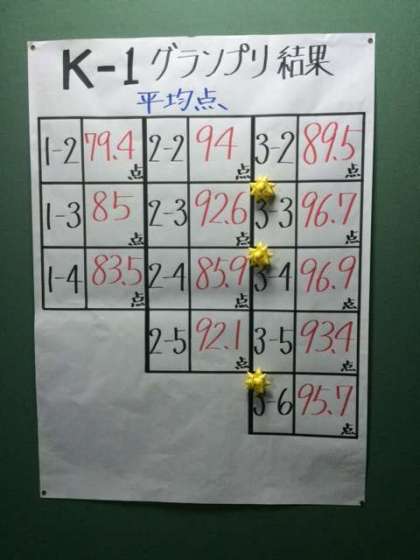 K-1 グランプリ結果
平均点、
1-2 79.4点 2-2 94点 3-2 89.5点
1-3 85点 2-3 92.6点 3-3 96.7点
1-4 83.5点 2-4 85.9点 3-4 96.9点
2-5 92.1点 3-5 93.4点
3-6 95.7点